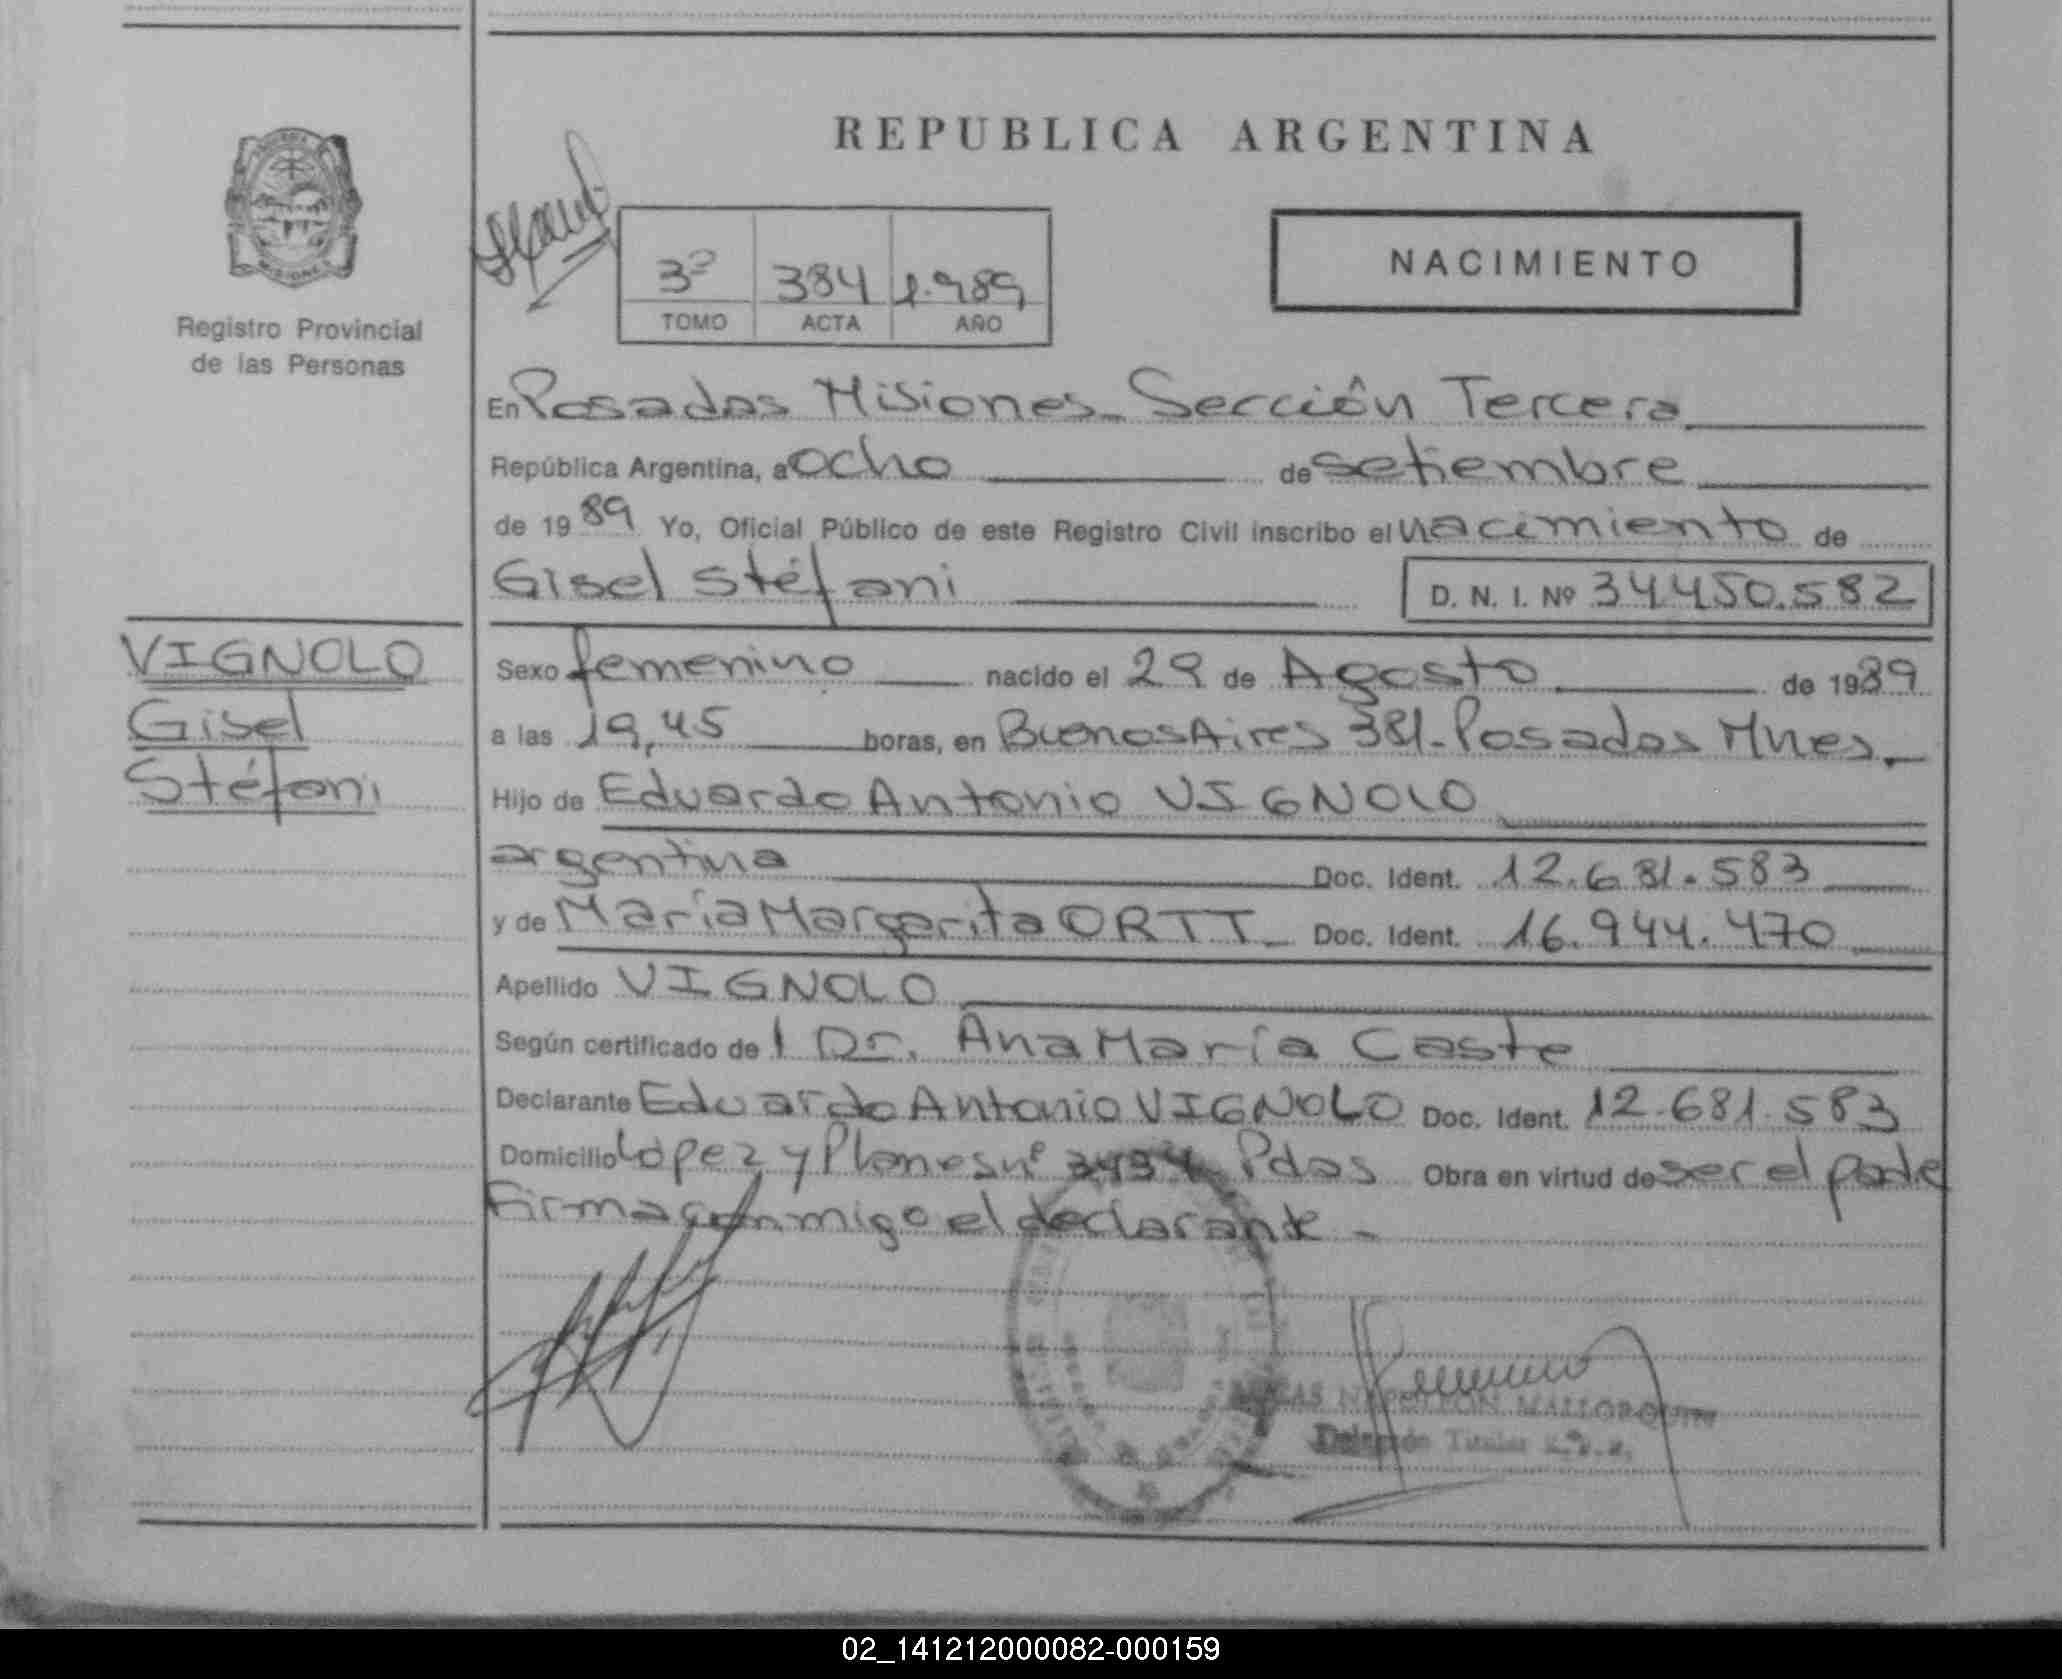 REPUBLICA ARGENTINA
MISIONES
Registro Provincial
de las Personas
3º 384 1.989
TOMO ACTA AÑO
NACIMIENTO
En Posadas Misiones - Sección Tercera
República Argentina, a ocho de setiembre
de 1989 Yo, Oficial Público de este Registro Civil inscribo el nacimiento de
Gisel Stéfani D. N. I. Nº 34.450.582
VIGNOLO
Gisel
Stéfani
Sexo femenino nacido el 29 de Agosto de 1989
a las 19,45 horas, en Buenos Aires 381 - Posadas Mnes.
Hijo de Eduardo Antonio VIGNOLO
argentina Doc. Ident. 12.681.583
y de María Margarita ORTT Doc. Ident. 16.944.470
Apellido VIGNOLO
Según certificado de l Dr. Ana María Caste
Declarante Eduardo Antonio VIGNOLO Doc. Ident. 12.681.583
Domicilio López y Planes nº Pdas Obra en virtud de ser el padre
Firma conmigo el declarante -
NAPOLEON MALLORQUIN
Titular
02_141212000082-000159